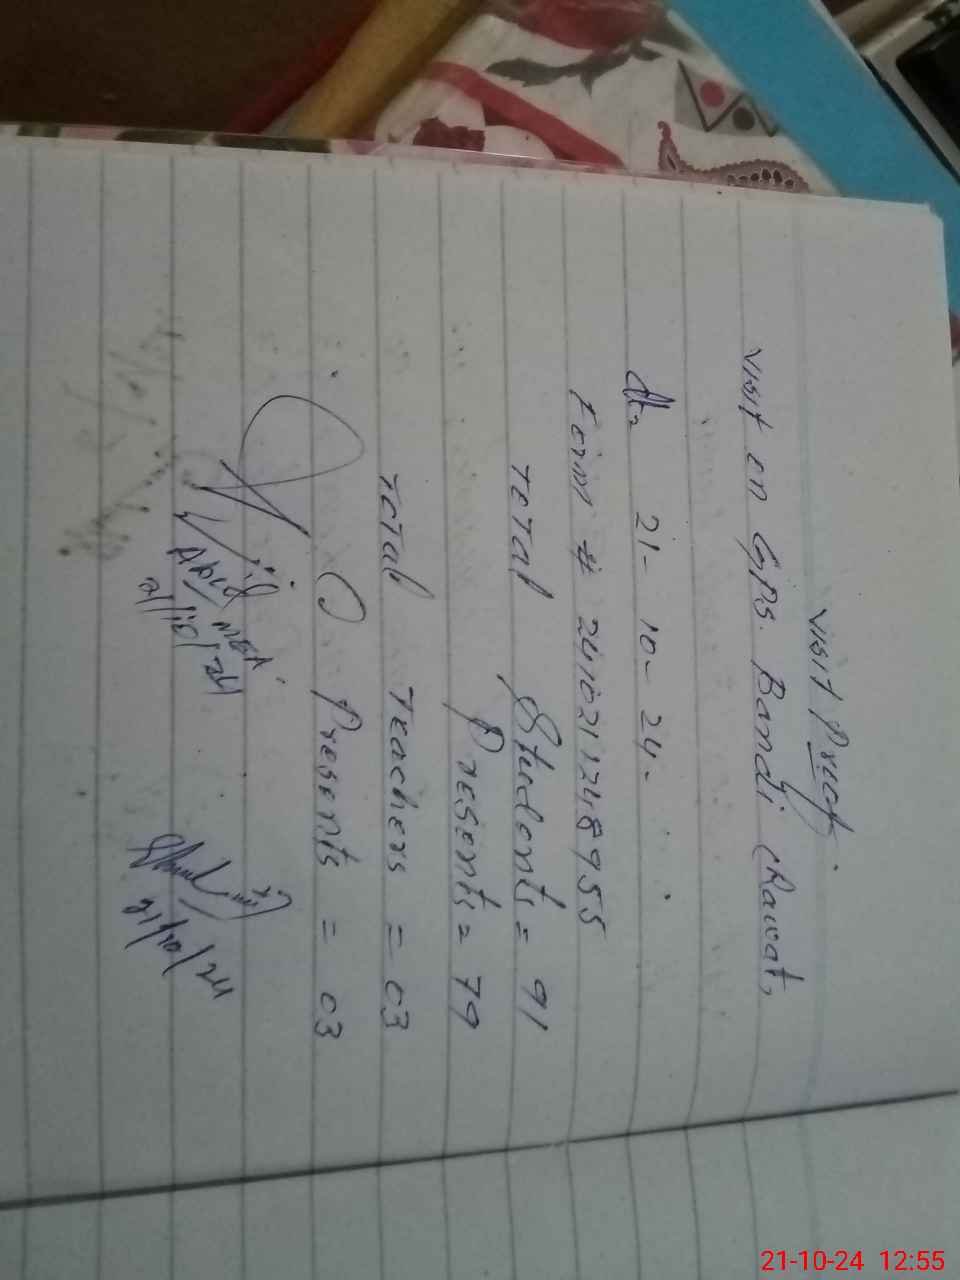 Visit Proof.
Visit on GPS. Bandi Chawat,
dt= 21-10-24-
Form # 2410211248955
Total Students = 91
Presents = 79
Total Teachers = 03
Presents = 03
Abid MEA.
21/10/24
21/10/24
21-10-24 12:55